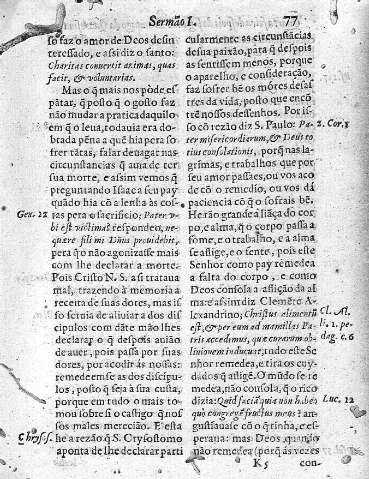 Sermão I. 77
so faz o amor de Deos desin
teressado, e assi diz o santo:
Charitas convertit animas, quas
facit, & voluntarias.
Mas o q̃ mais nos pòde es-
pãtar, q̃ posto q̃ o gosto faz
não mudar a pratica daquilo
em q̃ o leva, todavia era do-
brada pẽna a que hia pera so-
frer tãtas, falar devagar nas
circunstãcias q̃ auia de ter
sua morte, e assim vemos q̃
preguntando Isaac a seu pay
quãdo hia cõ a lenha às cos-
tas pera o sacrificio; Pater v-
Gen. 22
bi est victima? respondeo, ne-
quære fili mi Dñus providebit,
pera q̃ não agonizasse mais
com lhe declarar a morte.
Pois Cristo N. S. assi tratava
mal, trazendo à memoria a
receita de suas dores, mas is-
so seruia de aliuiar a dos dis-
cipulos com dãte mão lhes
declarar o q̃ despois auião
de auer, pois passa por suas
dores, por acodir ás nossas:
remedeem se as dos discipu-
los, posto q̃ seja à sua custa,
porque em tudo o mais to-
mou sobre si o castigo q̃ nos
sos males mereciāo. E esta
he a rezão q̃ S. Crysostomo
Chrysos.
aponta de lhe declarar parti
cularmente as circunstácias
de sua paixão, para q̃ despois
as sentissem menos, porque
o aparelho, e consideração,
faz sofrer bẽ os móres desas-
tres da vida, posto que encõ
trẽ nossos dessenhos. Por is-
so cõ rezão diz S. Paulo: Pa-
2. Cor. 1
ter misericordiarum, & Deus to-
tius consolationis, porq̃ nas la-
grimas, e trabalhos que por
seu amor passaes, ou vos aco
de cõ o remedio, ou vos dá
paciencia cõ q̃ o sofrais bẽ.
He rão grande a liāça do cor-
po, e alma, q̃ o corpo passa a
fome, e o trabalho, e a alma
se aflige, e o sente, pois este
Senhor como pay remedea
a falta do corpo, e como
Deos consola a aflição da al
ma: e assim diz Clemẽte A-
lexandrino; Christus alimentũ
Cl. Al.
est, & per eum ad mamillas Pa-
li. 1. pe-
tris accedimus, quæ curarum ob-
dag. c. 6
livionem inducunt, tudo este Se
nhor remedea, e tira os cuy-
dados q̃ aflige. O mũdo se re
medea, não consola, q̃ o rico
dizia: Quid faciã quia non habeo
Luc. 12
quò congregẽ fructus meos? an-
gustiauase cõ o q̃ tinha, e es-
perava: mas Deos, quando
não remedea (porq̃ às vezes
K 5 con-